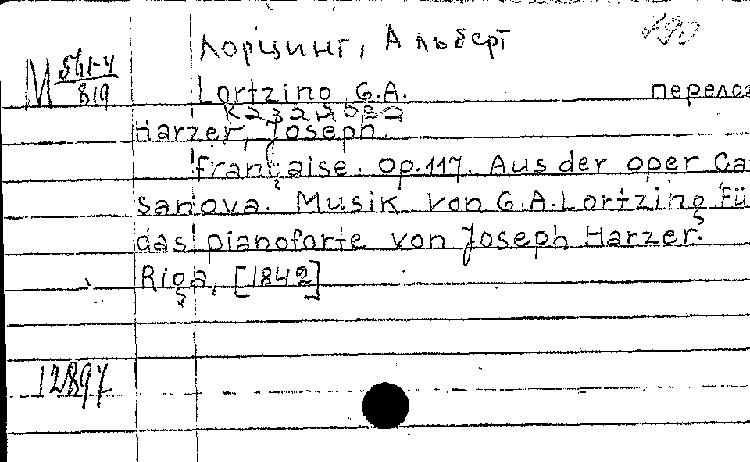 Лорцинг, Альберт 190
M 561-4/819
Lortzing G.A. перелож
Harzer, Joseph.
Française. Op.117. Aus der oper Ca
sanova. Musik von G.A.Lortzing Fü
das pianoforte von Joseph Harzer.
Riga, [1842]
12897